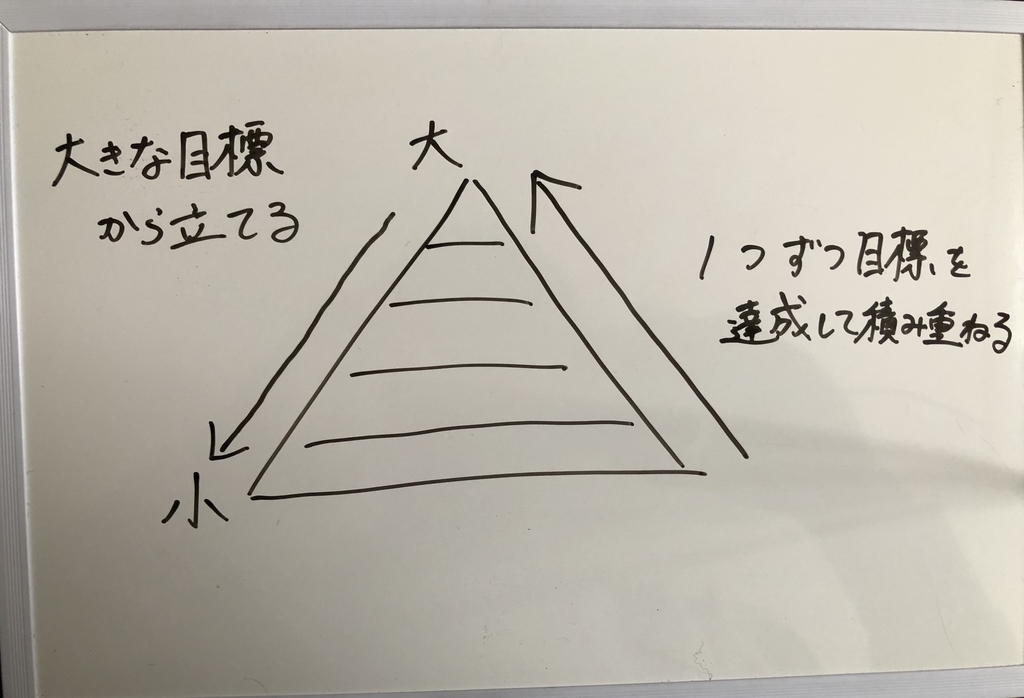 大きな目標
から立てる
大
小
1つずつ目標を
達成して積み重ねる